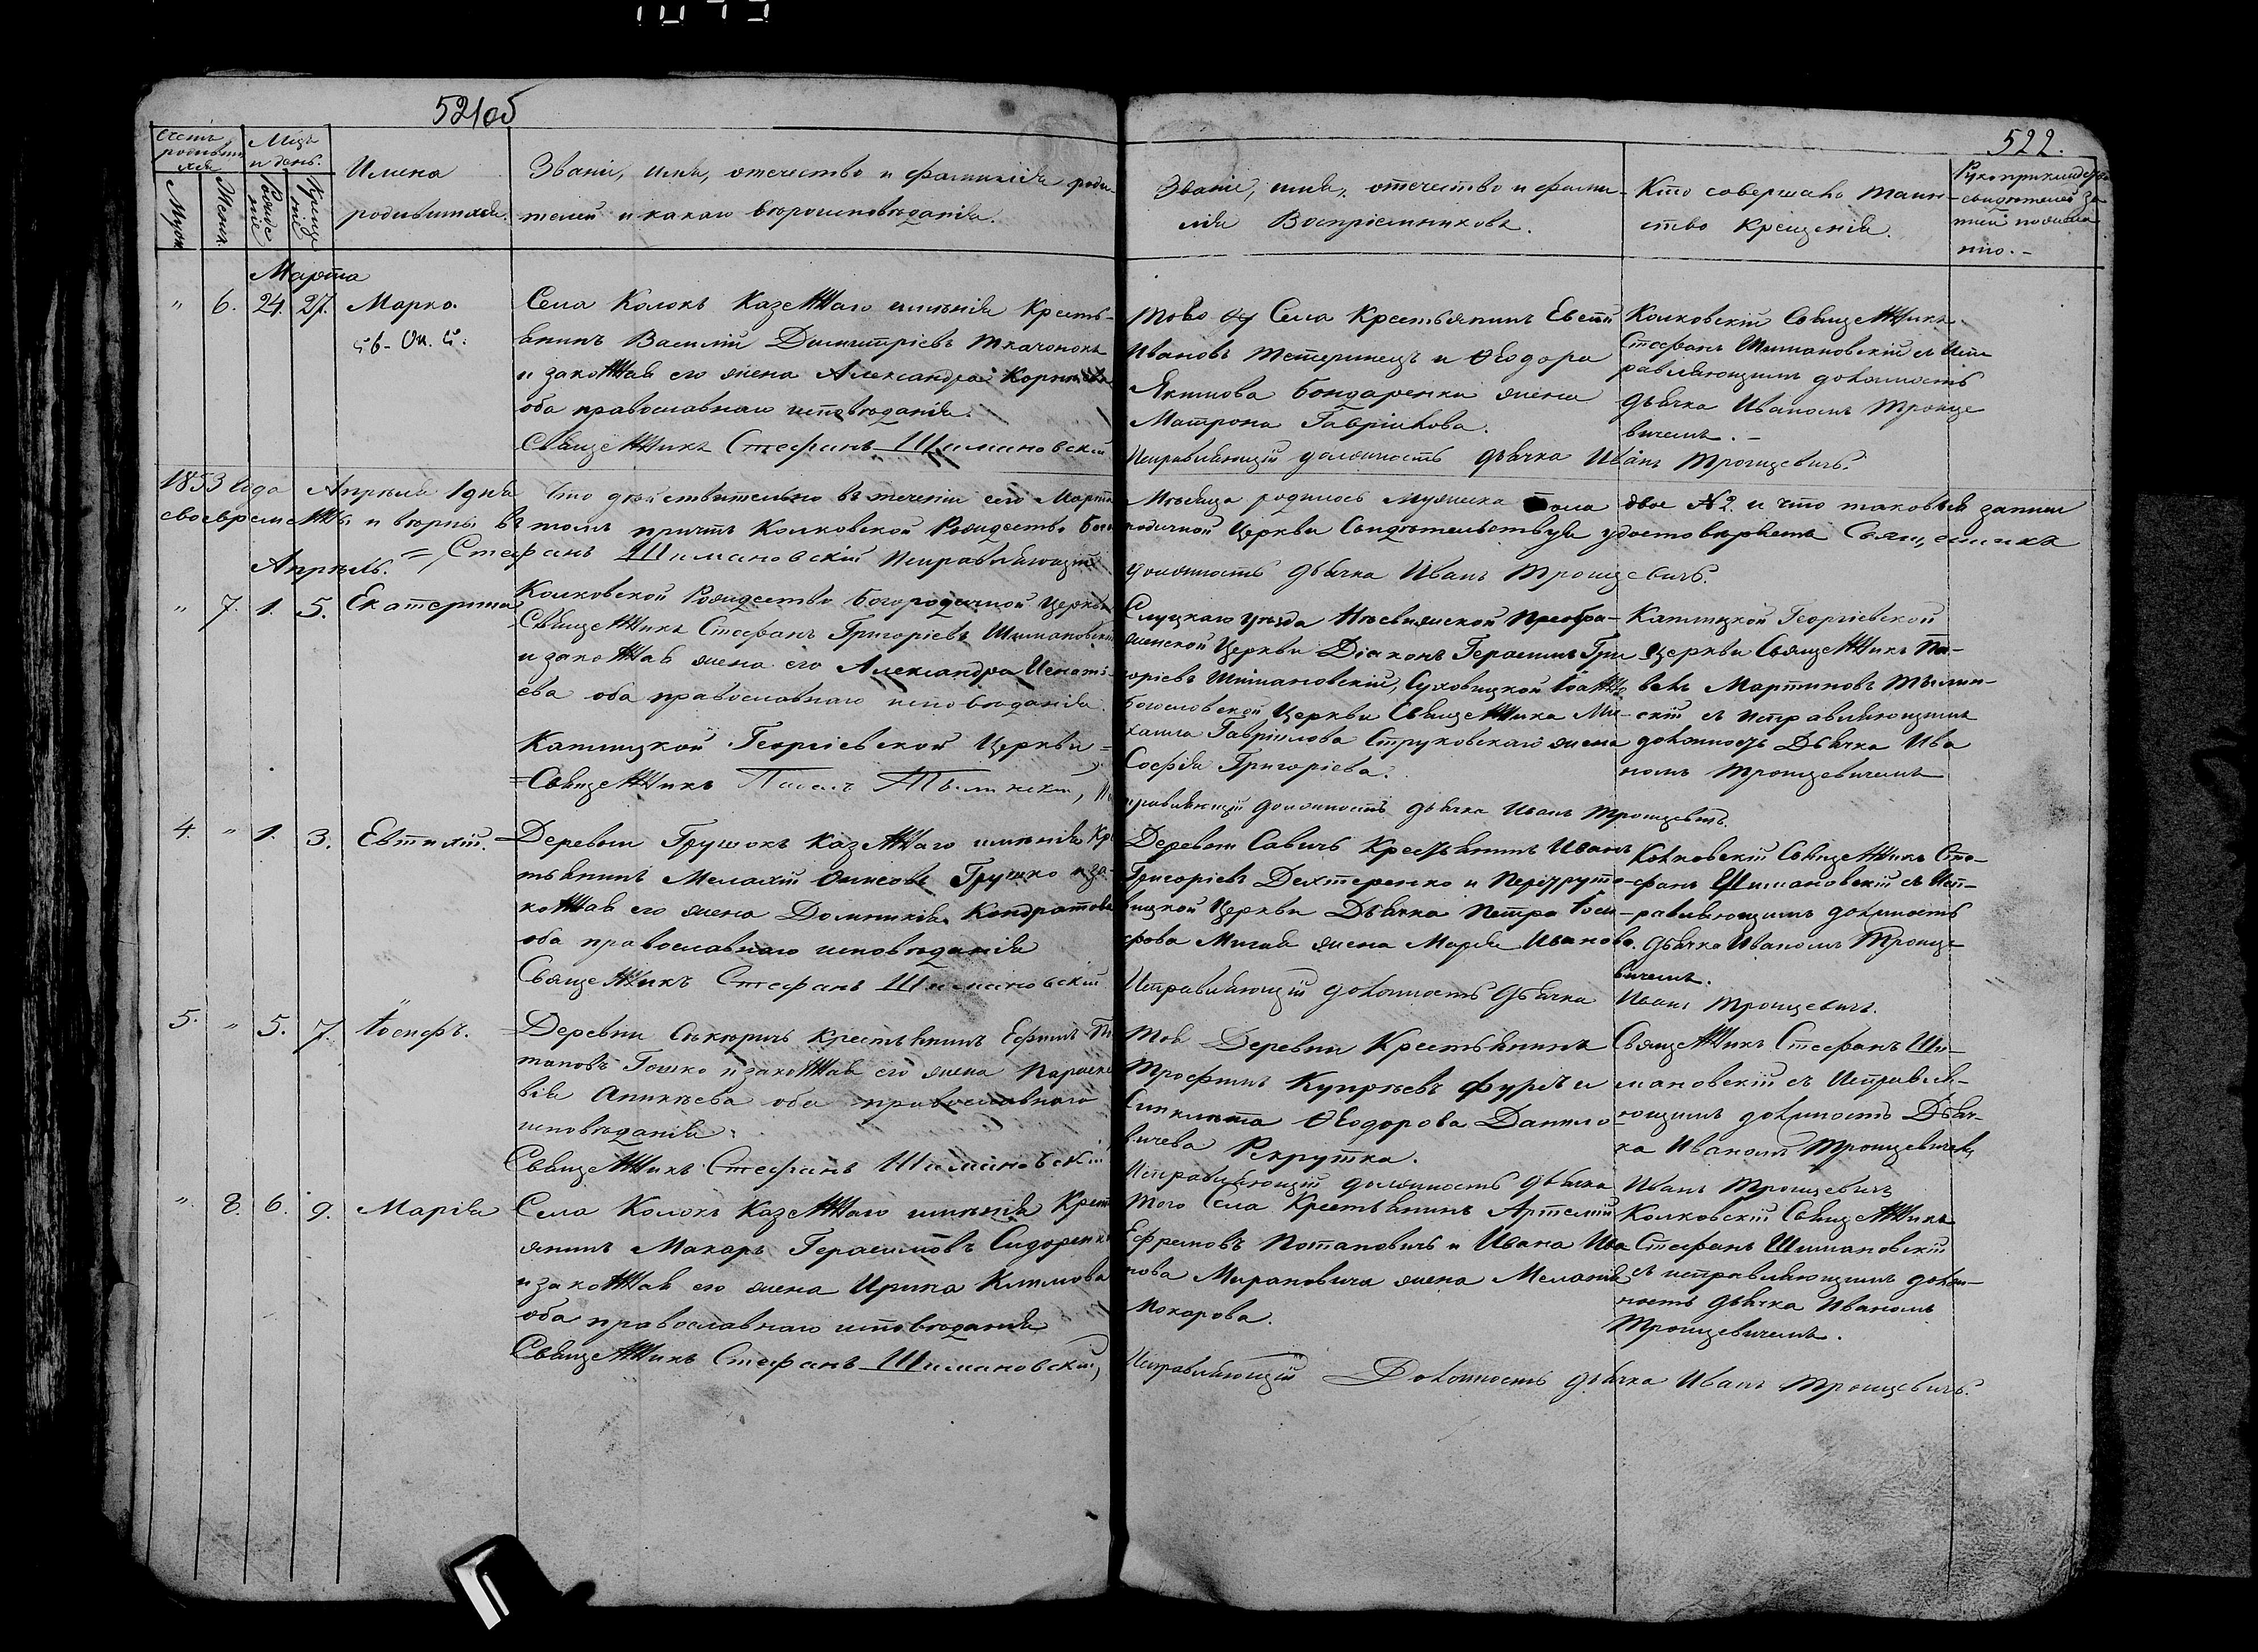 521об
522.
Счетъ родившихся
Мсцъ и день.
Муж.
Женск.
Рожденіе
Крещеніе
Имена
родившихся.
Званіе, имя, отечество и фамилія роди-
телей и какаго вѣроисповѣданія.
Званіе, имя, отечество и фами-
лія Воспріемниковъ.
Кто совершалъ таин-
ство крещенія.
Рукоприкладство
свидѣтелей за-
писи по жела-
нію.
Марта
" 6. 24. 27. Марко.
Села Колокъ Казеннаго имѣнія Кресть-
янинъ Василій Димитріевъ Ткаченокъ
и законная его жена Александра
оба православнаго исповѣданія.
Священникъ Стефанъ Шимановскій
Того Села Крестьянинъ
Ивановъ Тетеринецъ и Ѳеодора
Якимова Бондаренки жена
Матрона Гавріилова.
Исправляющій должность дьячка Иванъ Троицевичъ.
Колковскій Священникъ
Стефанъ Шимановскій съ Исп-
равляющимъ должность
дьячка Иваномъ Троице-
вичемъ.
1853 года Апрѣля 1 дня Что дѣйствительно въ теченіи сего Марта Мѣсяца родилось мужеска пола двое №2. и что таковыя записи
своевременны и вѣрны въ томъ причтъ Колковской Рождество Бого-родичной Церкви Свидѣтельствуя удостовѣряетъ Священникъ
Стефанъ Шимановскій Исправляющій должность дьячка Иванъ Троицевичъ.
Апрѣль.
" 7. 1. 5. Екатерина
Колковской Рождество Богородичной Церкви
Священникъ Стефанъ Григоріевъ Шимановскій
и законная жена его Александра Игнаті-
ева оба православнаго исповѣданія.
Георгіевской Церкви =
= Священникъ
Слуцкаго уѣзда Несвижской Преобра-
женской Церкви Діаконъ Герасимъ Гри-
горіевъ Шимановскій, Суховицкой Іоанно
Богословской Церкви Священника Ми-
хаила Гавріилова Струковскаго жена
Софія Григоріева.
правляющій должность дьячка Иванъ Троицевичъ.
Георгіевской
Церкви Священникъ Па-
велъ Мартиновъ
съ исправляющимъ
должность Дьячка Ива
номъ Троицевичемъ
4. " 1. 3. Евтихій.
Деревни Грушокъ Казеннаго имѣнія Кре
тьянинъ Мелахій Грушко и за-
конная его жена Домникія Кондратова
оба православнаго исповѣданія
Священникъ Стефанъ Шимановскій
Деревни Савичъ Крестьянинъ Иванъ
Григоріевъ Дехтеренко и Перерутов-
ицкой Церкви Дьячка Петра Іоси-
фова Мигая жена Марія Иванова.
Исправляющій должность дьячка Иванъ Троицевичъ.
Колковскій Священникъ Сте-
фанъ Шимановскій съ Исп-
равляющимъ должность
дьячка Иваномъ Троице-
вичемъ.
5. " 5. 7. Іосифъ.
Деревни Секюричъ Крестьянинъ Ефимъ
Гошко и законная его жена Параске
вія Аникѣева оба православнаго
исповѣданія.
Священникъ Стефанъ Шимановскій
Тоя Деревни Крестьянинъ
Трофимъ Купрѣевъ Фурса и
Синклита Ѳеодорова Данило-
вичева Рекрутка.
Исправляющій должность дьячка Иванъ Троицевичъ
Священникъ Стефанъ Ши-
мановскій съ Исправля-
ющимъ должность Дьяч-
ка Иваномъ Троицевичемъ
" 8. 6. 9. Марія
Села Колокъ Казеннаго имѣнія Крест
янинъ Макаръ Герасимовъ Сидоренко
и законная его жена Ирина Климова
оба православнаго исповѣданія
Священникъ Стефанъ Шимановскій,
Того Села Крестьянинъ Артемій
Ефремовъ Потаповичъ и Ивана Ива
нова Мирановича жена Меланія
Макарова.
Исправляющій Должность дьячка Иванъ Троицевичъ.
Колковскій Священникъ
Стефанъ Шимановскій
съ исправляющимъ долж-
ность дьячка Иваномъ
Троицевичемъ.